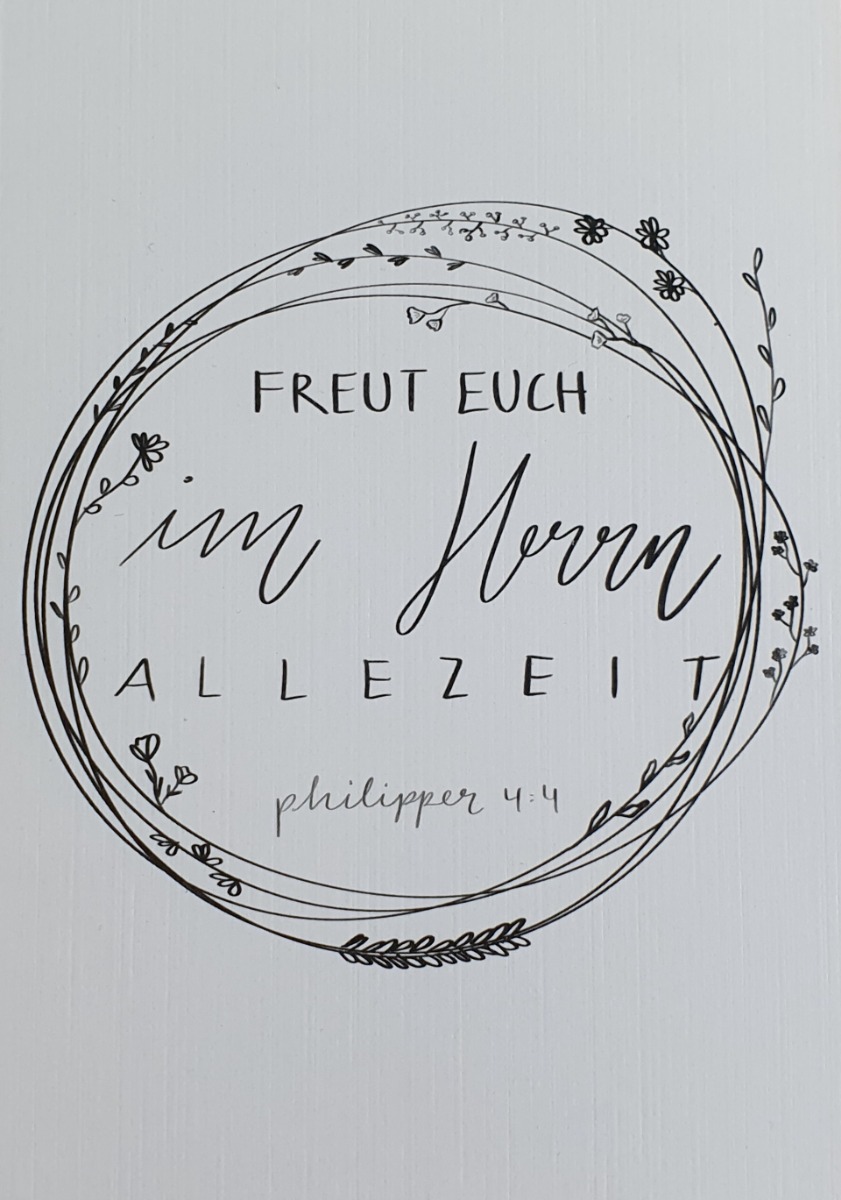 FREUT EUCH
im Herrn
ALLEZEIT
philipper 4:4